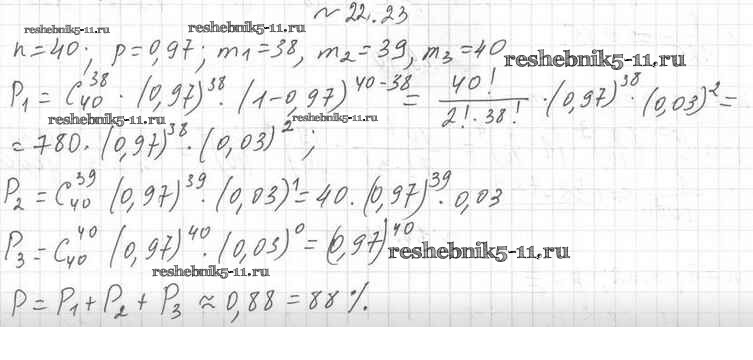 № 22.23
reshebnik5-11.ru reshebnik5-11.ru
n=40; p=0,97; m₁=38, m₂=39, m₃=40
reshebnik5-11.ru
P₁ = C₄₀³⁸ · (0,97)³⁸ · (1-0,97)⁴⁰⁻³⁸ = 40!/(2!·38!) · (0,97)³⁸ · (0,03)² =
reshebnik5-11.ru reshebnik5-11.ru
= 780 · (0,97)³⁸ · (0,03)²;
P₂ = C₄₀³⁹ (0,97)³⁹ · (0,03)¹ = 40 · (0,97)³⁹ · 0,03
P₃ = C₄₀⁴⁰ (0,97)⁴⁰ · (0,03)⁰ = (0,97)⁴⁰
reshebnik5-11.ru
reshebnik5-11.ru
P = P₁ + P₂ + P₃ ≈ 0,88 = 88%.